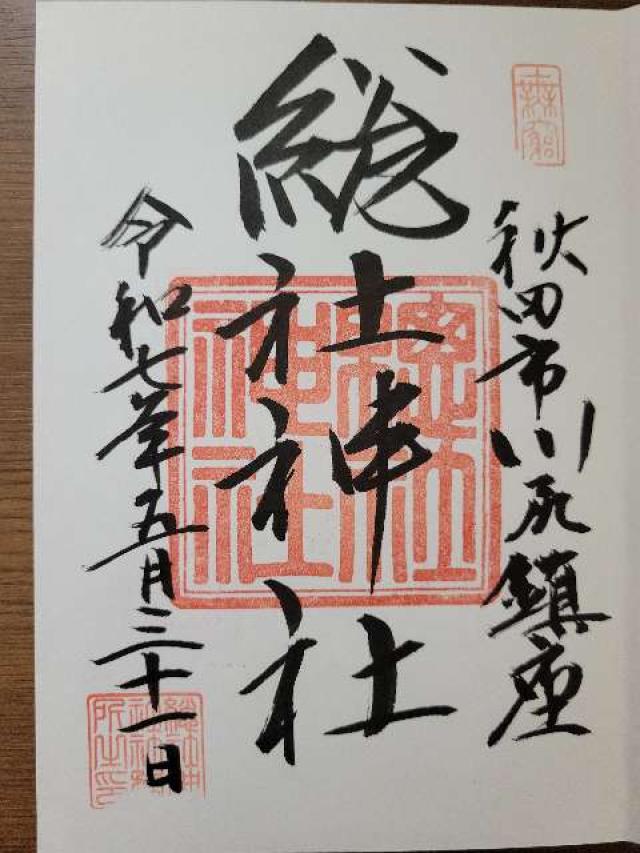 秋田市川尻鎮座
総社神社
令和七年五月三十一日
總社神社